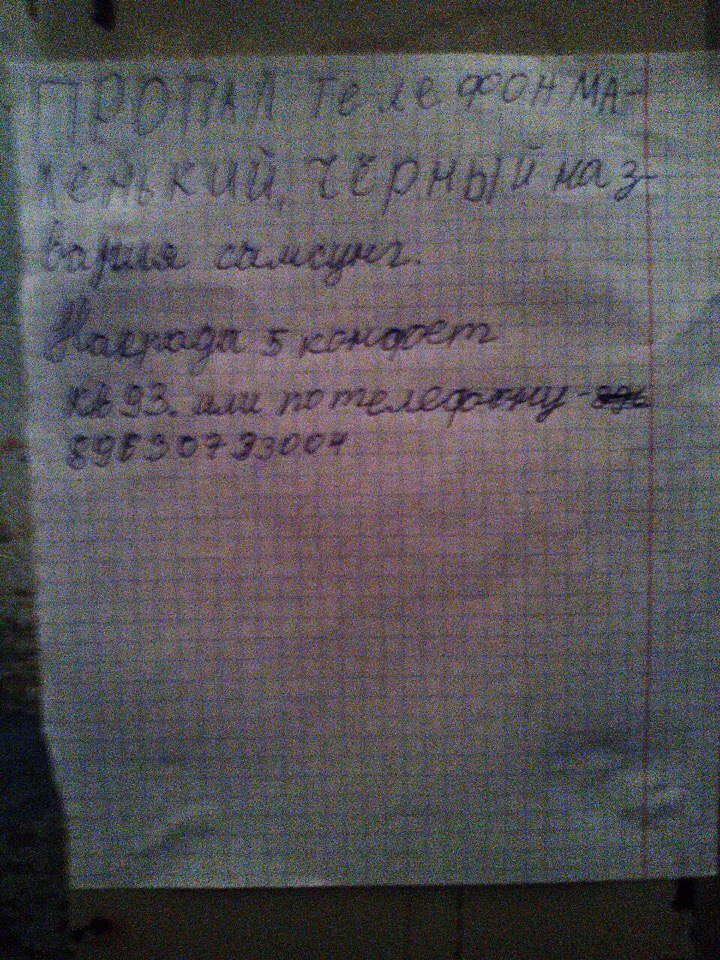 ПРОПАЛ телефон МА-
ленький, ЧЁРНЫЙ наз-
вания самсунг.
Награда 5 конфет
кв 93. или по телефону -
89630733004